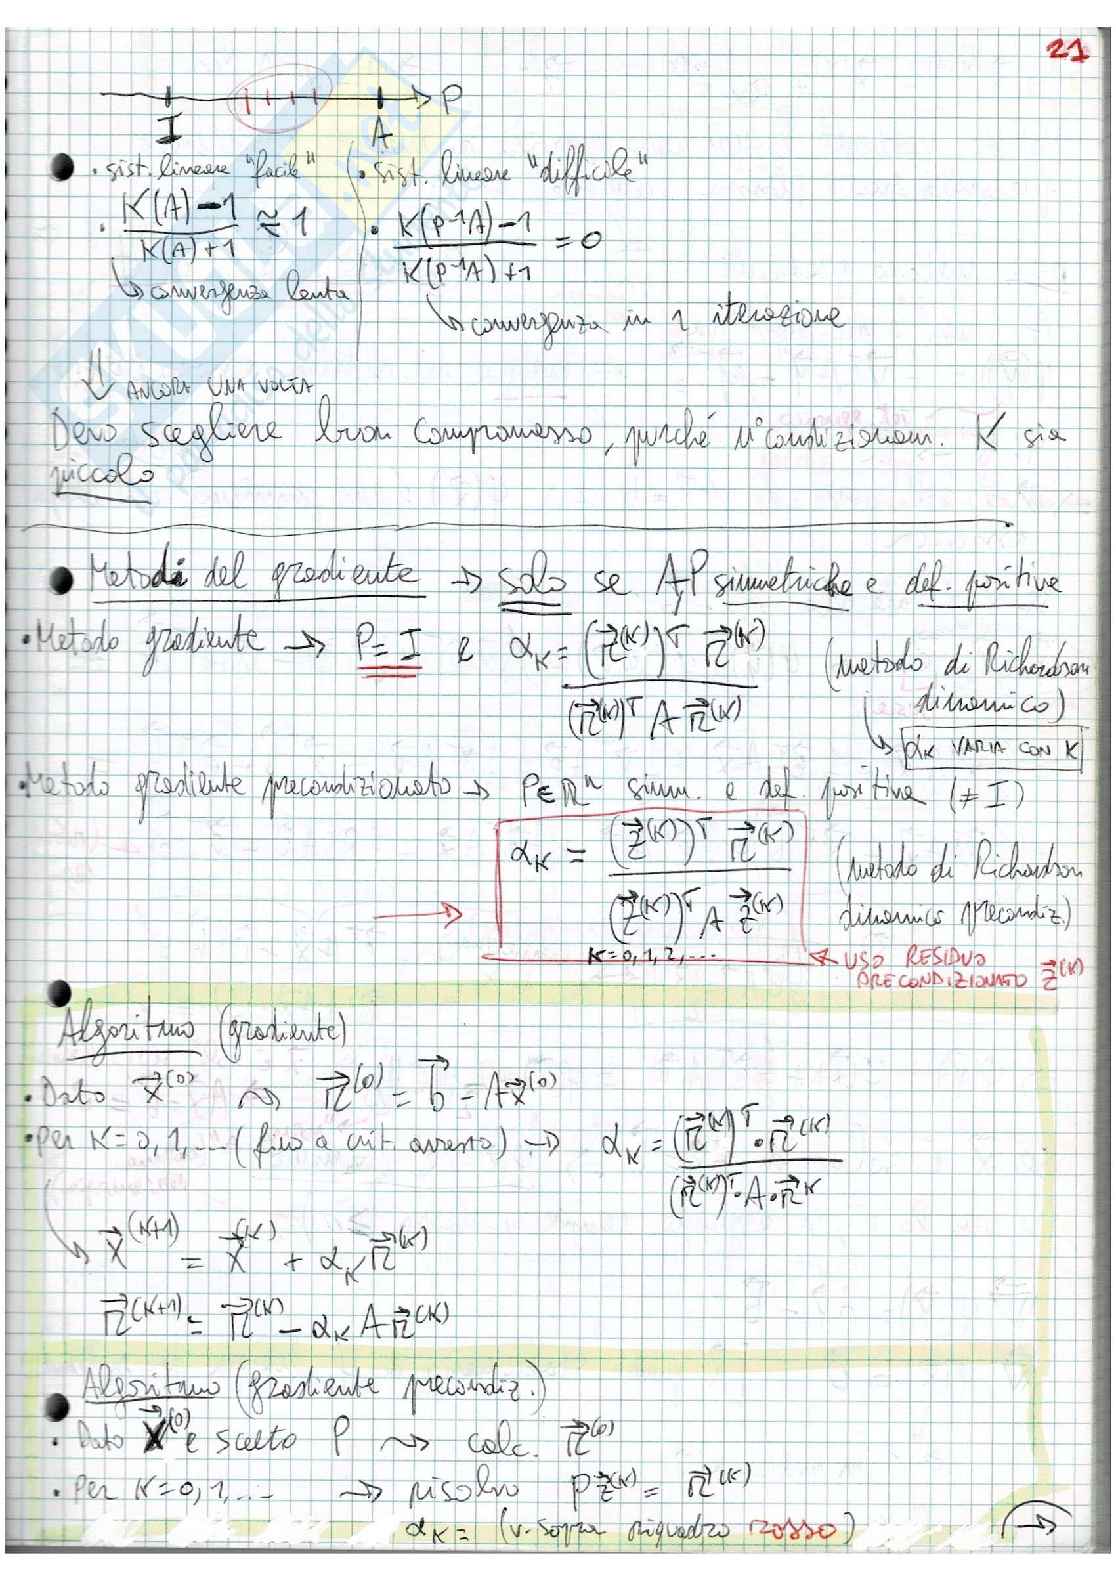 21
P
I
A
• sist. lineare "facile"
• sist. lineare "difficile"
• K(A)-1 / K(A)+1 ≈ 1
• K(P⁻¹A)-1 / K(P⁻¹A)+1 = 0
↳ convergenza lenta
↳ convergenza in 1 iterazione
⇓ ANCORA UNA VOLTA
Devo scegliere buon compromesso, purché n° condizionam. K sia
piccolo
• Metodi del gradiente → solo se A,P simmetriche e def. positive
• Metodo gradiente → P=I e αₖ = (r⃗⁽ᵏ⁾)ᵀ r⃗⁽ᵏ⁾ / (r⃗⁽ᵏ⁾)ᵀ A r⃗⁽ᵏ⁾ (metodo di Richardson
dinamico)
↳ αₖ VARIA CON K
• Metodo gradiente precondizionato → P∈ℝⁿ simm. e def. positiva (≠ I)
αₖ = (z⃗⁽ᵏ⁾)ᵀ r⃗⁽ᵏ⁾ / (z⃗⁽ᵏ⁾)ᵀ A z⃗⁽ᵏ⁾ (metodo di Richardson
dinamico precondiz.)
K=0,1,2,...
← USO RESIDUO
PRECONDIZIONATO z⃗⁽ᵏ⁾
• Algoritmo (gradiente)
• Dato x⃗⁽⁰⁾ ⤳ r⃗⁽⁰⁾ = b⃗ - Ax⃗⁽⁰⁾
• Per K=0,1,... (fino a crit. arresto) → αₖ = (r⃗⁽ᵏ⁾)ᵀ·r⃗⁽ᵏ⁾ / (r⃗⁽ᵏ⁾)ᵀ·A·r⃗ᵏ
↳ x⃗⁽ᵏ⁺¹⁾ = x⃗⁽ᵏ⁾ + αₖ r⃗⁽ᵏ⁾
r⃗⁽ᵏ⁺¹⁾ = r⃗⁽ᵏ⁾ - αₖ A r⃗⁽ᵏ⁾
• Algoritmo (gradiente precondiz.)
• Dato x⃗⁽⁰⁾ e scelto P ⤳ calc. r⃗⁽⁰⁾
• Per K=0,1,... → risolvo P z⃗⁽ᵏ⁾ = r⃗⁽ᵏ⁾
αₖ = (v. sopra riquadro rosso)
→